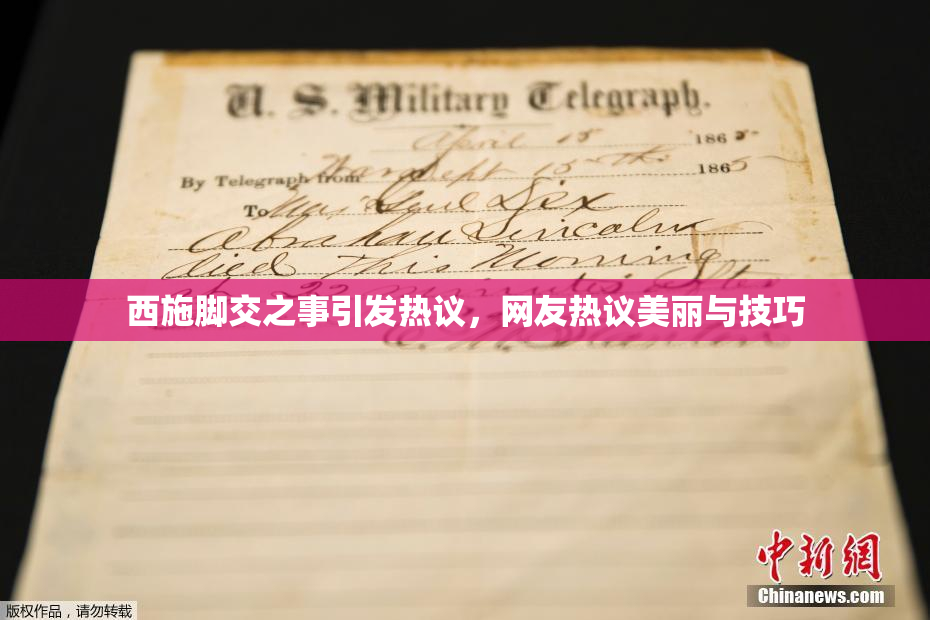 U. S. Military Telegraph.
April 15 1865
By Telegraph from War Dept 15th 1865
To Maj Genl Dix
Abraham Lincoln
died This Morning
at 22 minutes after
西施脚交之事引发热议，网友热议美丽与技巧
E. M. Stanton
中新网
Chinanews.com
版权作品，请勿转载